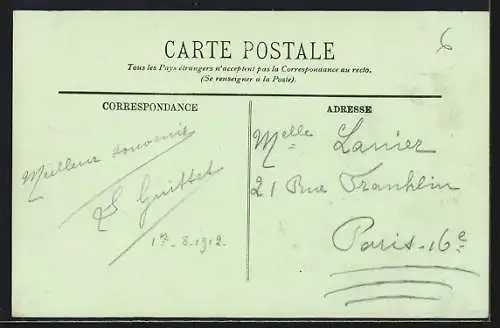 CARTE POSTALE
Tous les Pays étrangers n'acceptent pas la Correspondance au recto.
(Se renseigner à la Poste).
CORRESPONDANCE
ADRESSE
6
Meilleur souvenir
Guittet
17-8-1912.
Melle Lanier
21 Rue Franklin
Paris-16e